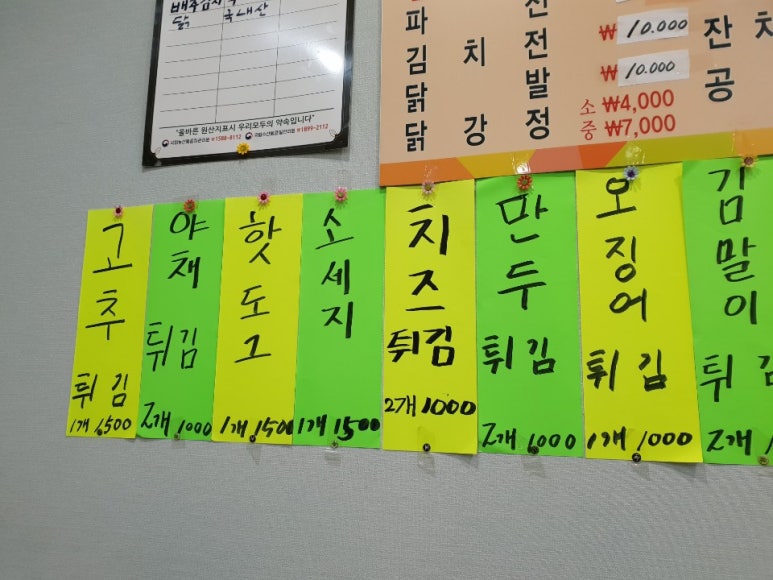 닭 국내산
"올바른 원산지표시 우리모두의 약속입니다"
국립농산물품질관리원 ☎1588-8112 국립수산물품질관리원 ☎1899-2112
파 전 ₩10.000
김 치 전 ₩10.000
닭 발 소 ₩4,000
닭 강 정 중 ₩7,000
잔치
공
고추
튀김
1개 1500
야채
튀김
2개 1000
핫도그
1개 1500
소세지
1개 1500
치즈
튀김
2개 1000
만두
튀김
2개 1000
오징어
튀김
1개 1000
김말이
튀김
2개